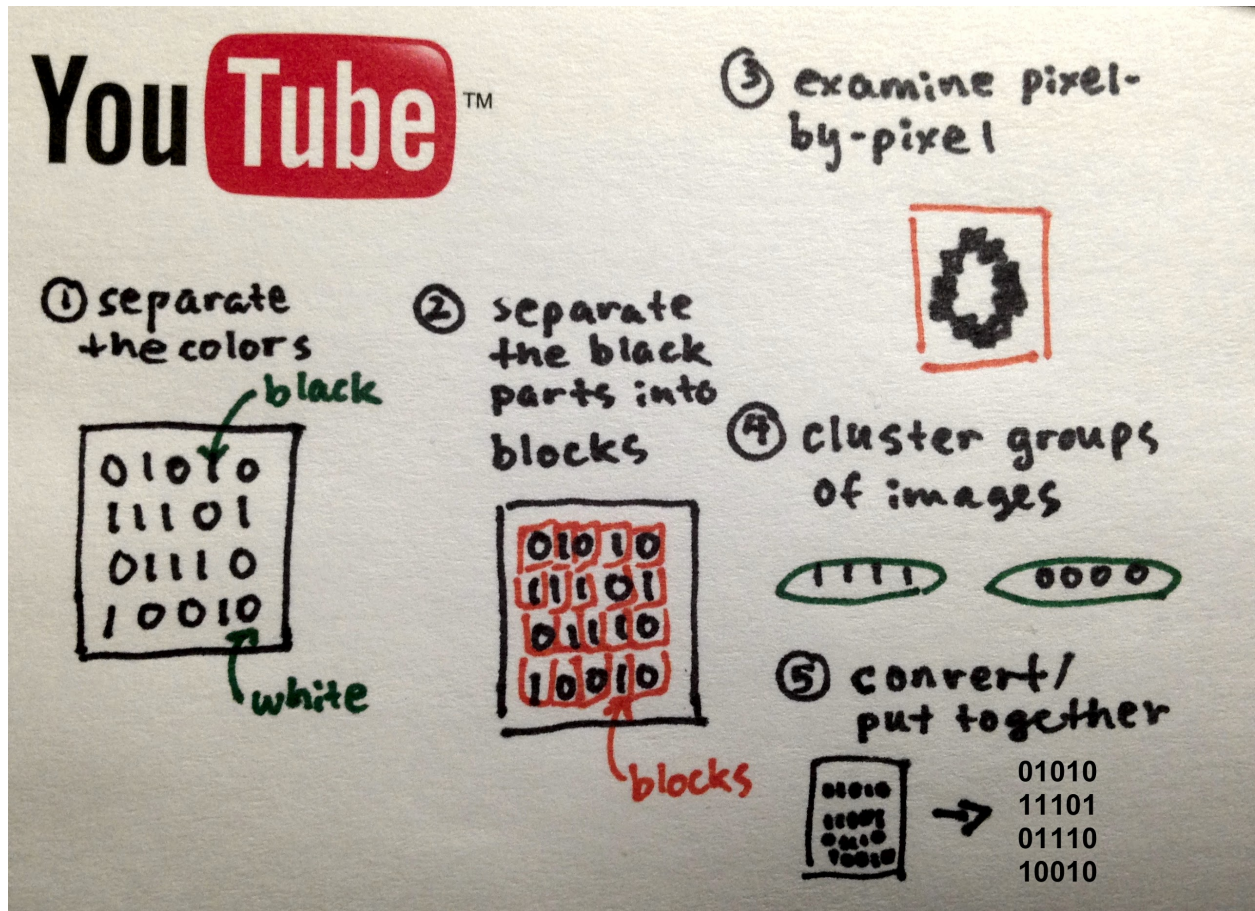 YouTube TM
① separate
the colors
black
01010
11101
01110
10010
white
② separate
the black
parts into
blocks
01010
11101
01110
10010
blocks
③ examine pixel-
by-pixel
0
④ cluster groups
of images
1111 0000
⑤ convert/
put together
01010
11101
01110
10010
01010
11101
01110
10010